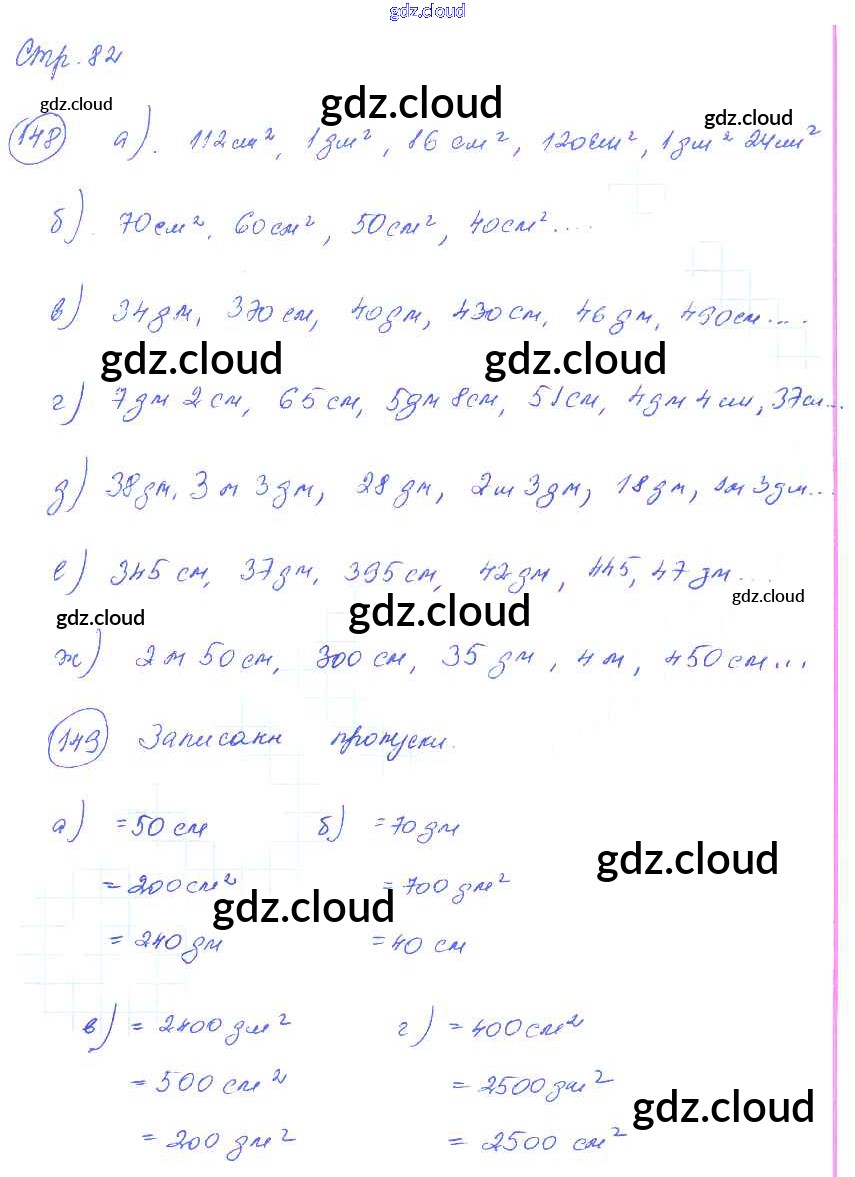 gdz.cloud
Стр. 82
gdz.cloud gdz.cloud gdz.cloud
148 а). 112см², 1дм², 116 см², 120см², 1дм² 24см²
б). 70см², 60см², 50см², 40см²....
в) 34дм, 370см, 40дм, 430см, 46дм, 490см....
gdz.cloud gdz.cloud
г) 7дм 2см, 65см, 5дм 8см, 51см, 4дм 4см, 37см...
д) 38дм, 3м 3дм, 28дм, 2м 3дм, 18дм, 1м 3дм...
е) 345 см, 37дм, 395см, 42дм, 445, 47дм...
gdz.cloud gdz.cloud gdz.cloud
ж) 2м 50см, 300см, 35дм, 4м, 450см...
149 Записаны пропуски.
а) =50см б) =70дм
gdz.cloud
=200см² =700дм²
gdz.cloud
=240дм =40 см
в) =2400дм² г) =400см²
=500 см² =2500дм²
gdz.cloud
=200 дм² =2500 см²